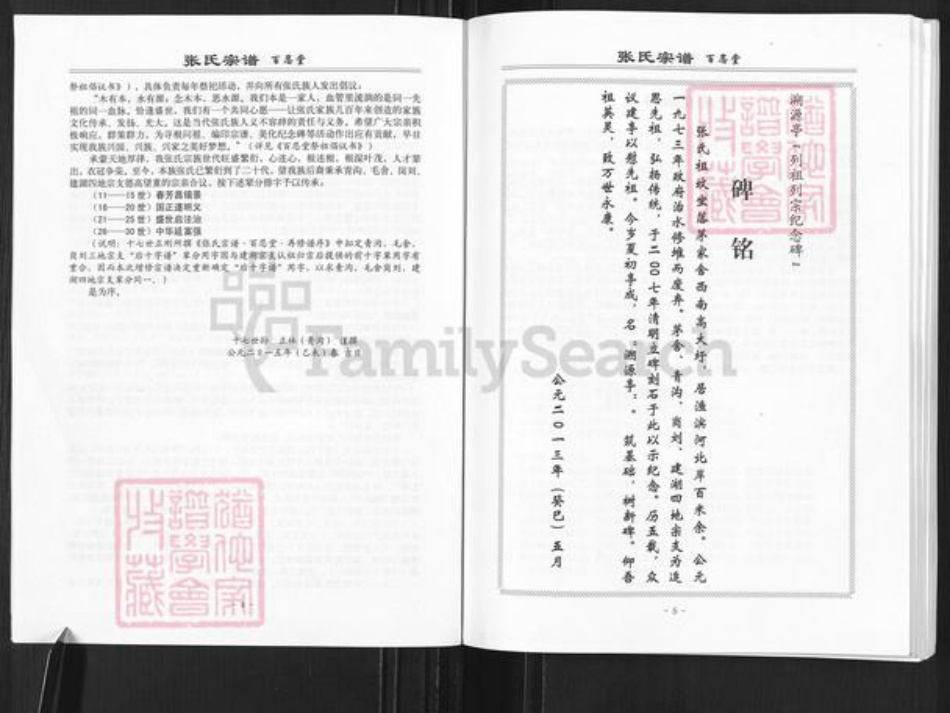 张氏宗谱 百忍堂
祭祖倡议书》),具体负责每年祭祀活动,并向所有张氏族人发出倡议:
"木有本,水有源;念木本,思水源。我们本是一家人,血管里流淌的是同一先
祖的同一血脉。恰逢盛世,我们有一个共同心愿——让张氏家族几百年来创造的家族
文化传承、发扬、光大,这是当代张氏族人义不容辞的责任与义务。希望广大宗亲积
极响应,群策群力,为寻根问祖、编印宗谱、美化纪念碑等活动作出应有贡献,早日
实现我族兴国、兴族、兴家之美好梦想。"(详见《百忍堂祭祖倡议书》)
承蒙天地厚泽,我张氏宗族世代旺盛繁衍,心连心,根连根,根深叶茂,人才辈
出,衣冠争荣。至今,本族张氏已繁衍到了二十代。望我族后裔秉承青沟、毛舍、岗刘、
建湖四地宗支德高望重的宗亲合议,按下述辈分排字予以传承。
(11——15世)春芳昌锦景
(16——20世)国正道明义
(21——25世)盛世启法治
(26——30世)中华延富强
(说明:十七世正刚所撰《张氏宗谱·百忍堂·再修谱序》中拟定青沟、毛舍、
岗刘三地宗支"后十字谱"辈分用字因与建湖宗支认祖归宗后提供的前十字辈用字有
重合。因而本次增修宗谱决定重新确定"后十字谱"用字,以求青沟、毛舍岗刘、建
湖四地宗支辈分同一。)
是为序。
十七世孙 正林(青沟) 谨撰
公元二0一五年(乙未)春 吉日
FamilySearch
张氏宗谱 百忍堂
溯源亭"列祖列宗纪念碑"
碑铭
张氏祖坟坐落茅家舍西南高大圩,居渔滨河北岸百米余。公元
一九七三年政府治水修堆而废弃。茅舍、青沟、岗刘、建湖四地宗支为追
思先祖,弘扬传统,于二00七年清明立碑刻石于此以示纪念。历五载,众
议建亭以慰先祖。今岁夏初亭成,名"溯源亭"。筑基础,树新碑。仰吾
祖英灵,致万世永康。
公元二0一三年(癸巳)五月
- 5 -